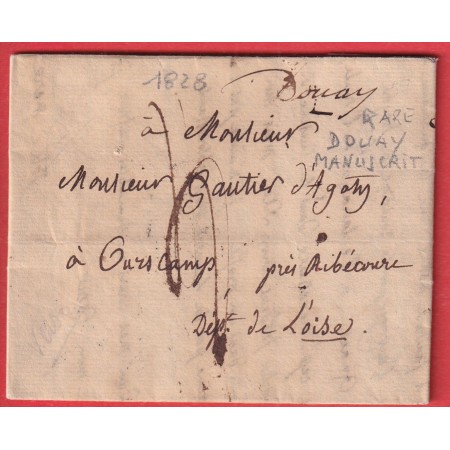 1828
Douay
RARE
DOUAY
MANUSCRIT
à Monsieur
Monsieur Gautier d'Agoty,
à Ourscamp, près Ribécourt
Dépt. de L'oise.